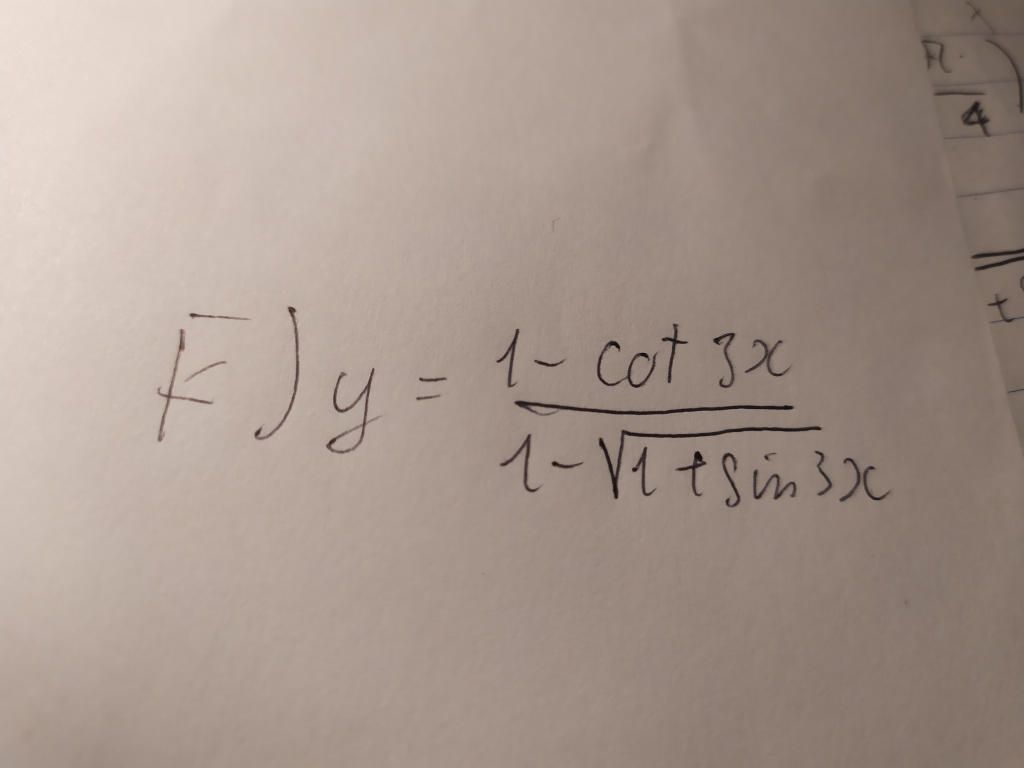 F) y = \frac{1 - cot 3x}{1 - \sqrt{1 + sin 3x}}
4